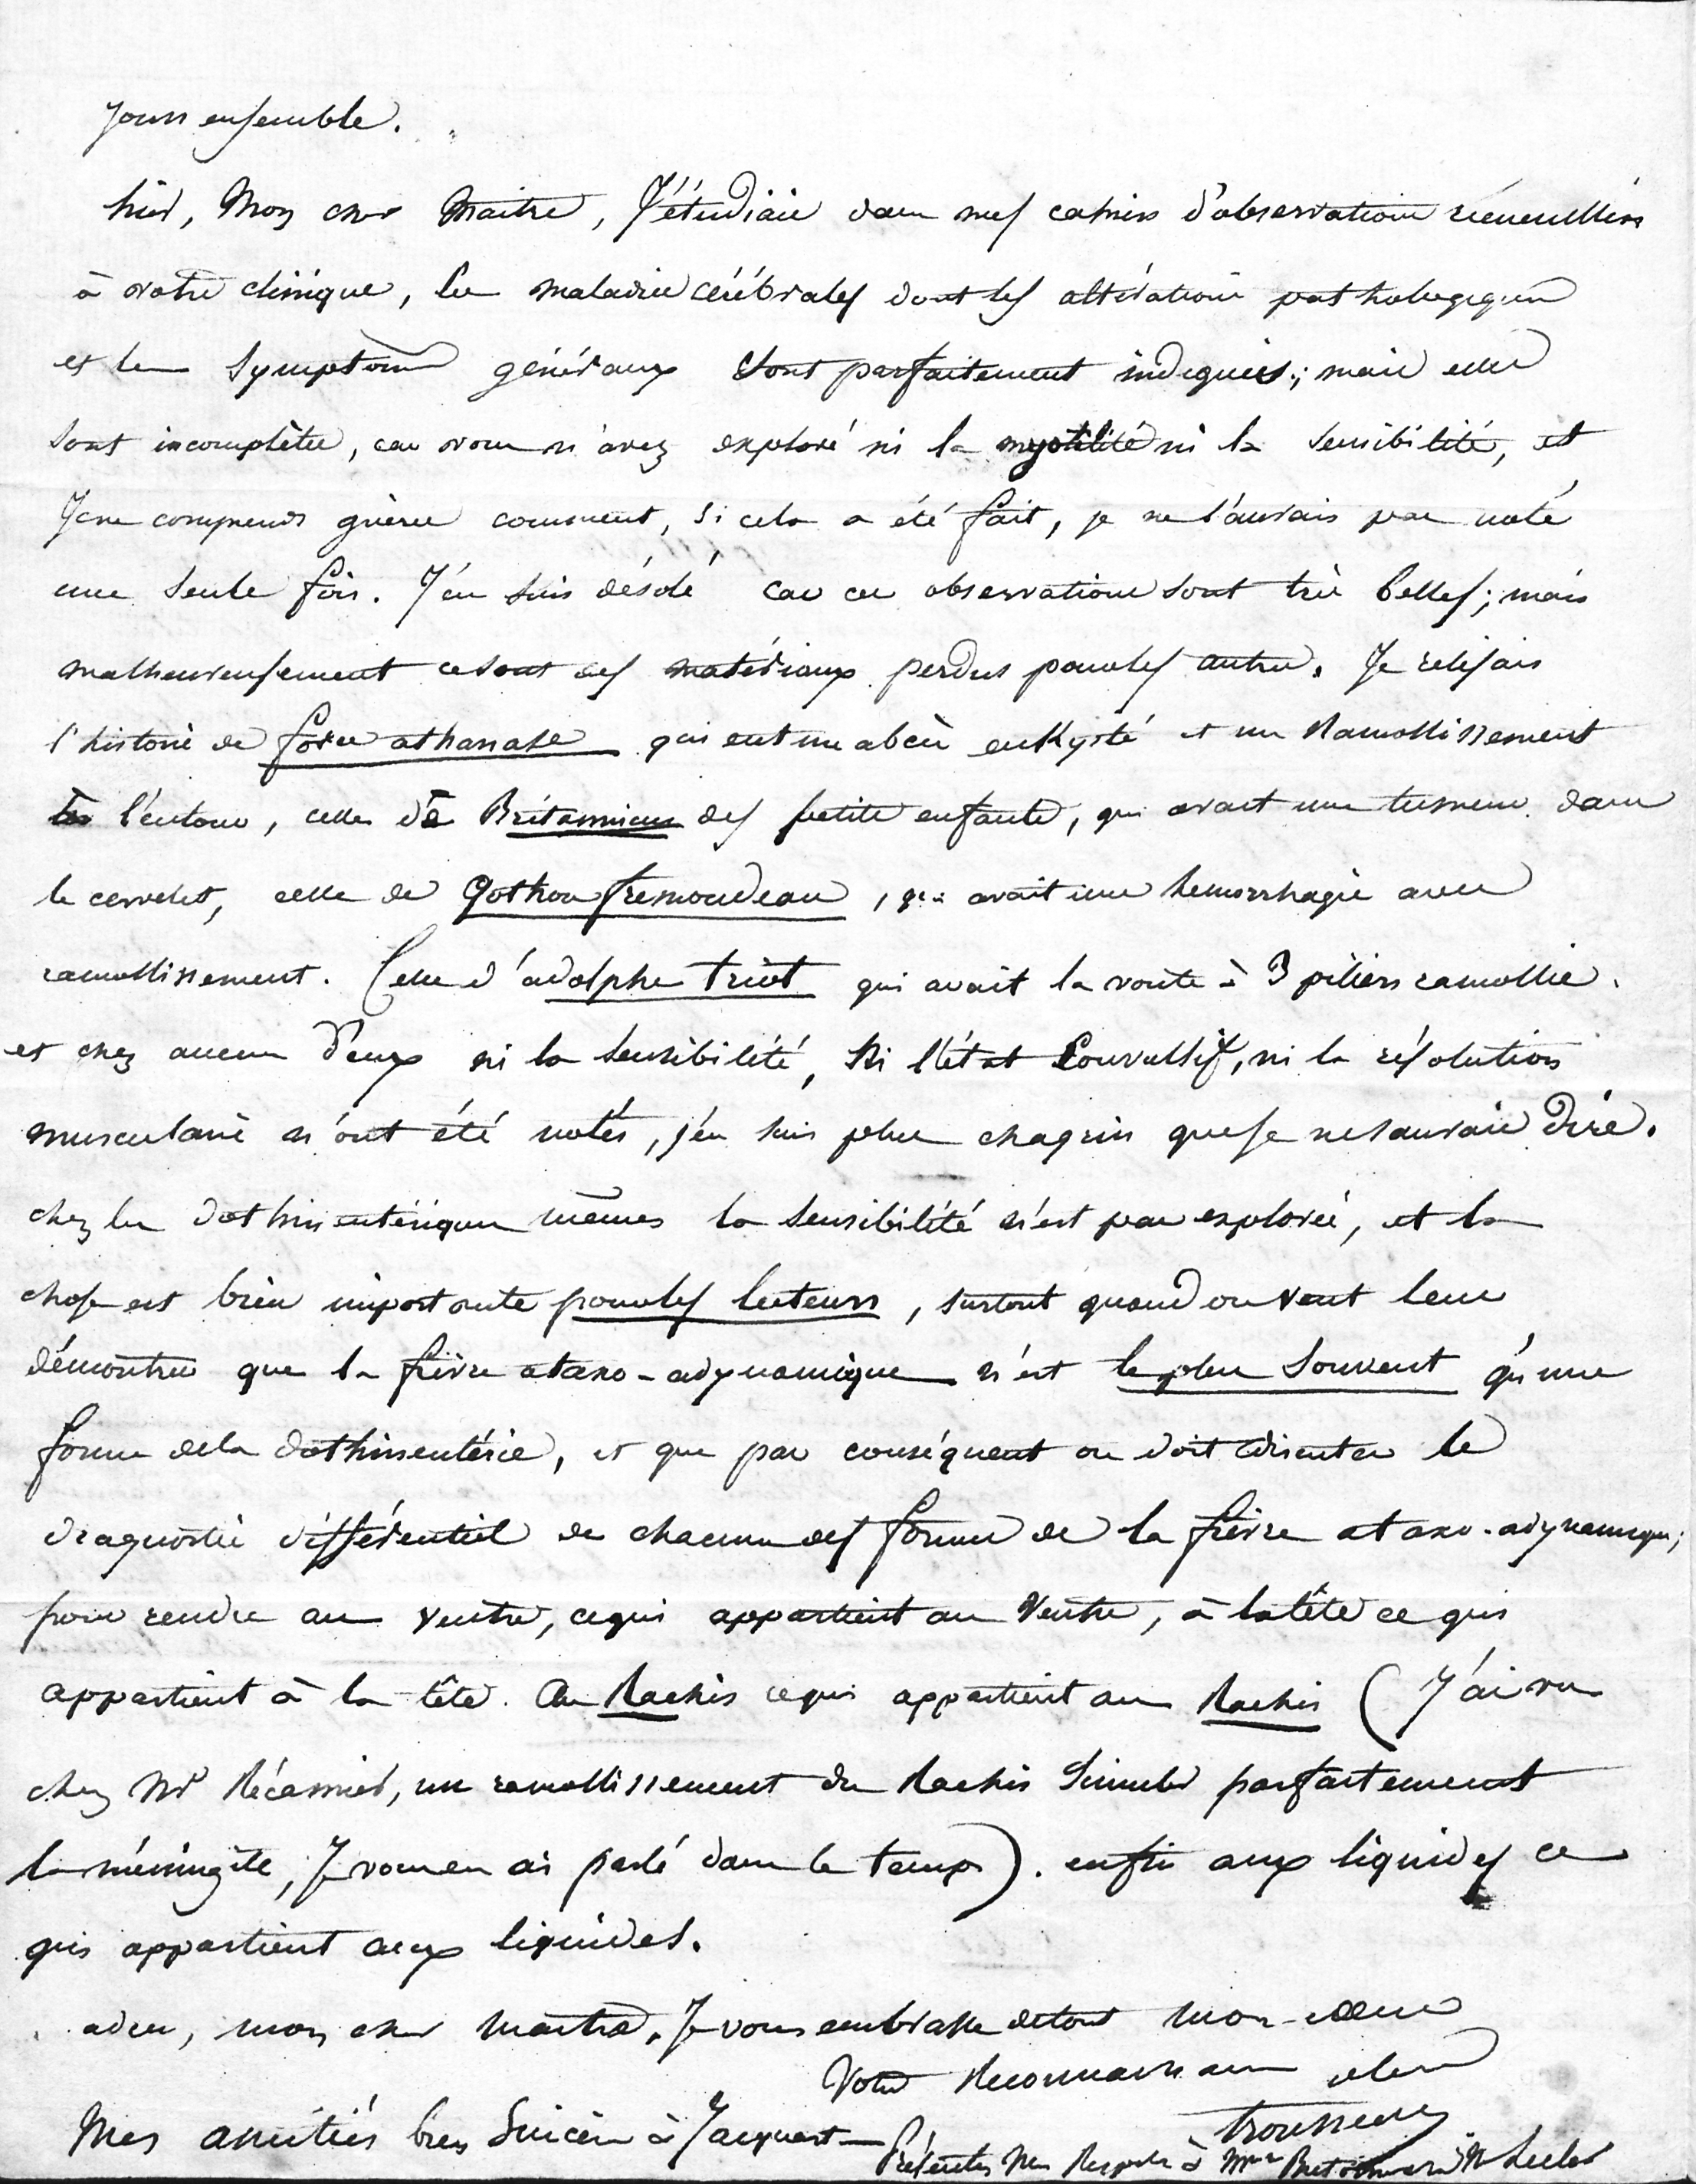 Jours ensemble.
hier, Mon cher Maitre, J'étudiais dans mes cahiers d'observations recueillies
à votre clinique, les maladies cérébrales dont les altérations pathologiques
et les symptômes généraux sont parfaitement indiqués; mais elles
sont incomplètes, car vous n'avez exploré ni la myotilité ni la sensibilité, et
Je ne comprends guères comment, si cela a été fait, je ne l'aurais pas noté
une seule fois. J'en suis désolé car ces observations sont très belles; mais
malheureusement ce sont des matériaux perdus pour les autres. Je relisais
l'histoire de athanase qui eut un abcès enkysté et un Ramollissement
à l'entour, celle de Britannicus des petits enfants, qui avait une tumeur dans
le cervelet, celle de Gothon Tremoudeau, qui avait une hemorrhagie avec
ramollissement. Celle d'adolphe triot qui avait la voute à 3 piliers ramollie.
et chez aucun d'eux ni la sensibilité, Ni l'état Convulsif, ni la résolution
musculaire n'ont été notés, j'en suis plus chagrin que je ne saurais Dire.
chez les dothinentériques mêmes la sensibilité n'est pas explorée, et la
chose est bien importante pour les lecteurs, surtout quand on veut leur
démontrer que la fièvre ataxo-adynamique n'est le plus souvent qu'une
forme de la dothinentérie, et que par conséquent on doit discuter le
diagnostic différentiel de chacune des formes de la fièvre ataxo-adynamique;
pour rendre au ventre, ce qui appartient au Ventre, à la tête ce qui
appartient à la tête. Au Rachis ce qui appartient au Rachis (J'ai vu
chez Mr Récamier, un ramollissement du Rachis simuler parfaitement
la méningite, Je vous en ai parlé dans le temps). enfin aux liquides ce
qui appartient aux liquides.
adieu, mon cher maitre, Je vous embrasse de tout mon cœur
Votre Reconnaissant eleve
trousseau
Mes amitiés bien Sincères à Jacquart
Présentez Mes Respects à Mme Bretonneau